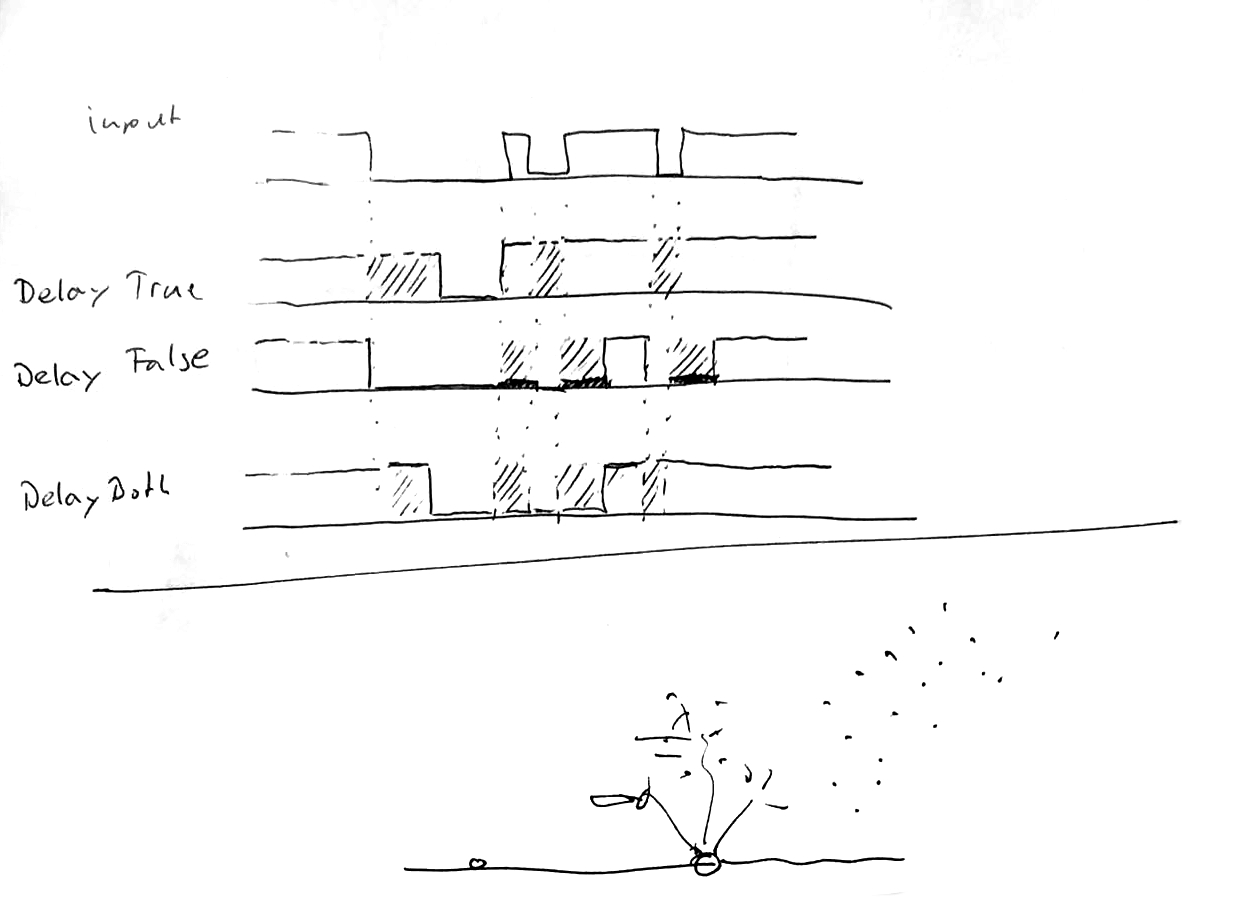 input
Delay True
Delay False
Delay Both